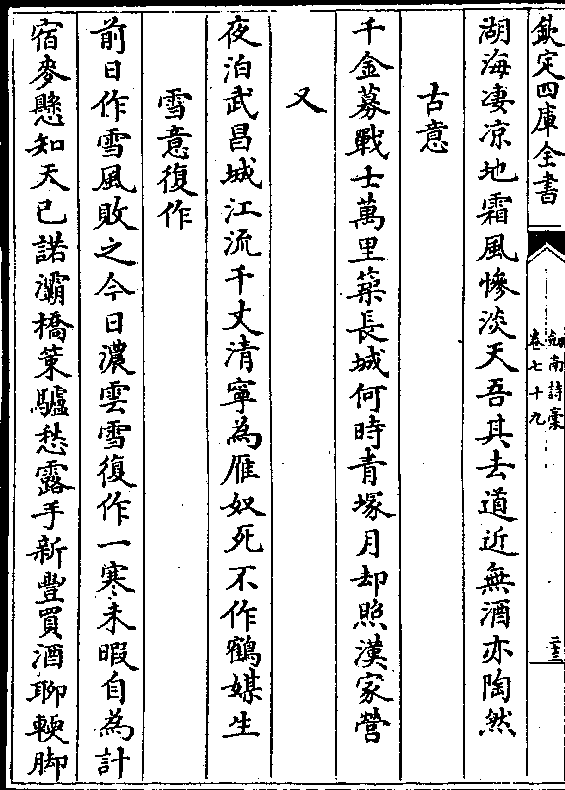 欽定四庫全書
劒南詩稾
卷七十九
二十三
湖海凄凉地霜風慘淡天吾其去道近無酒亦陶然
古意
千金募戰士萬里築長城何時青塚月却照漢家營
又
夜泊武昌城江流千丈清寧為雁奴死不作鶴媒生
雪意復作
前日作雪風敗之今日濃雲雪復作一寒未暇自為計
宿麥懸知天已諾灞橋策驢愁露手新豐買酒聊輭脚